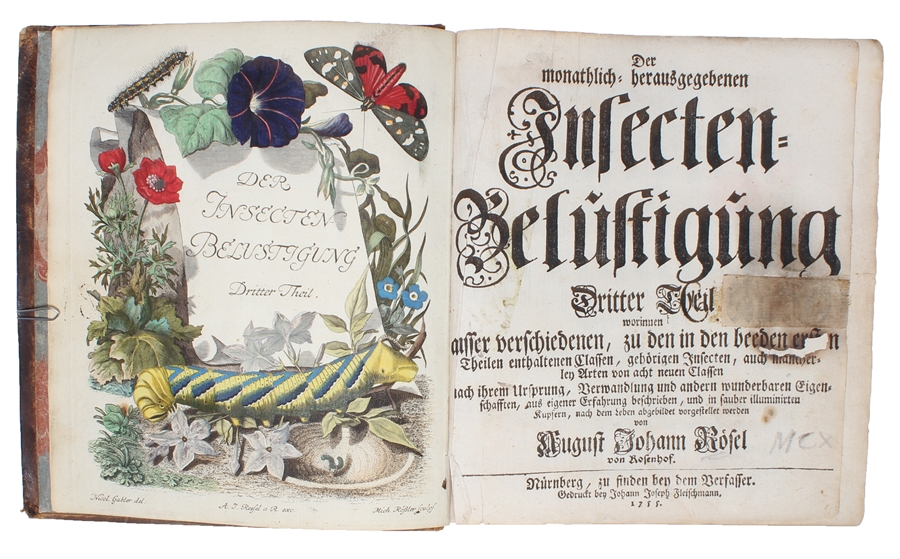 DER
INSECTEN
BELUSTIGUNG
Dritter Theil.
Nicol. Gabler del.
A. J. Roesel a R. exc.
Mich. Rößler sculps.
Der
monathlich-herausgegebenen
Insecten-
Belustigung
Dritter Theil
worinnen
ausser verschiedenen, zu den in den beeden
Theilen enthaltenen Classen, gehörigen Insecten, auch mancher-
ley Arten von acht neuen Classen
nach ihrem Ursprung, Verwandlung und andern wunderbaren Eigen-
schafften, aus eigener Erfahrung beschrieben, und in sauber illuminirten
Kupfern, nach dem Leben abgebildet vorgestellet werden
von
August Johann Rösel
von Rosenhof.
MCX
Nürnberg, zu finden bey dem Verfasser.
Gedruckt bey Johann Joseph Fleischmann,
1755.